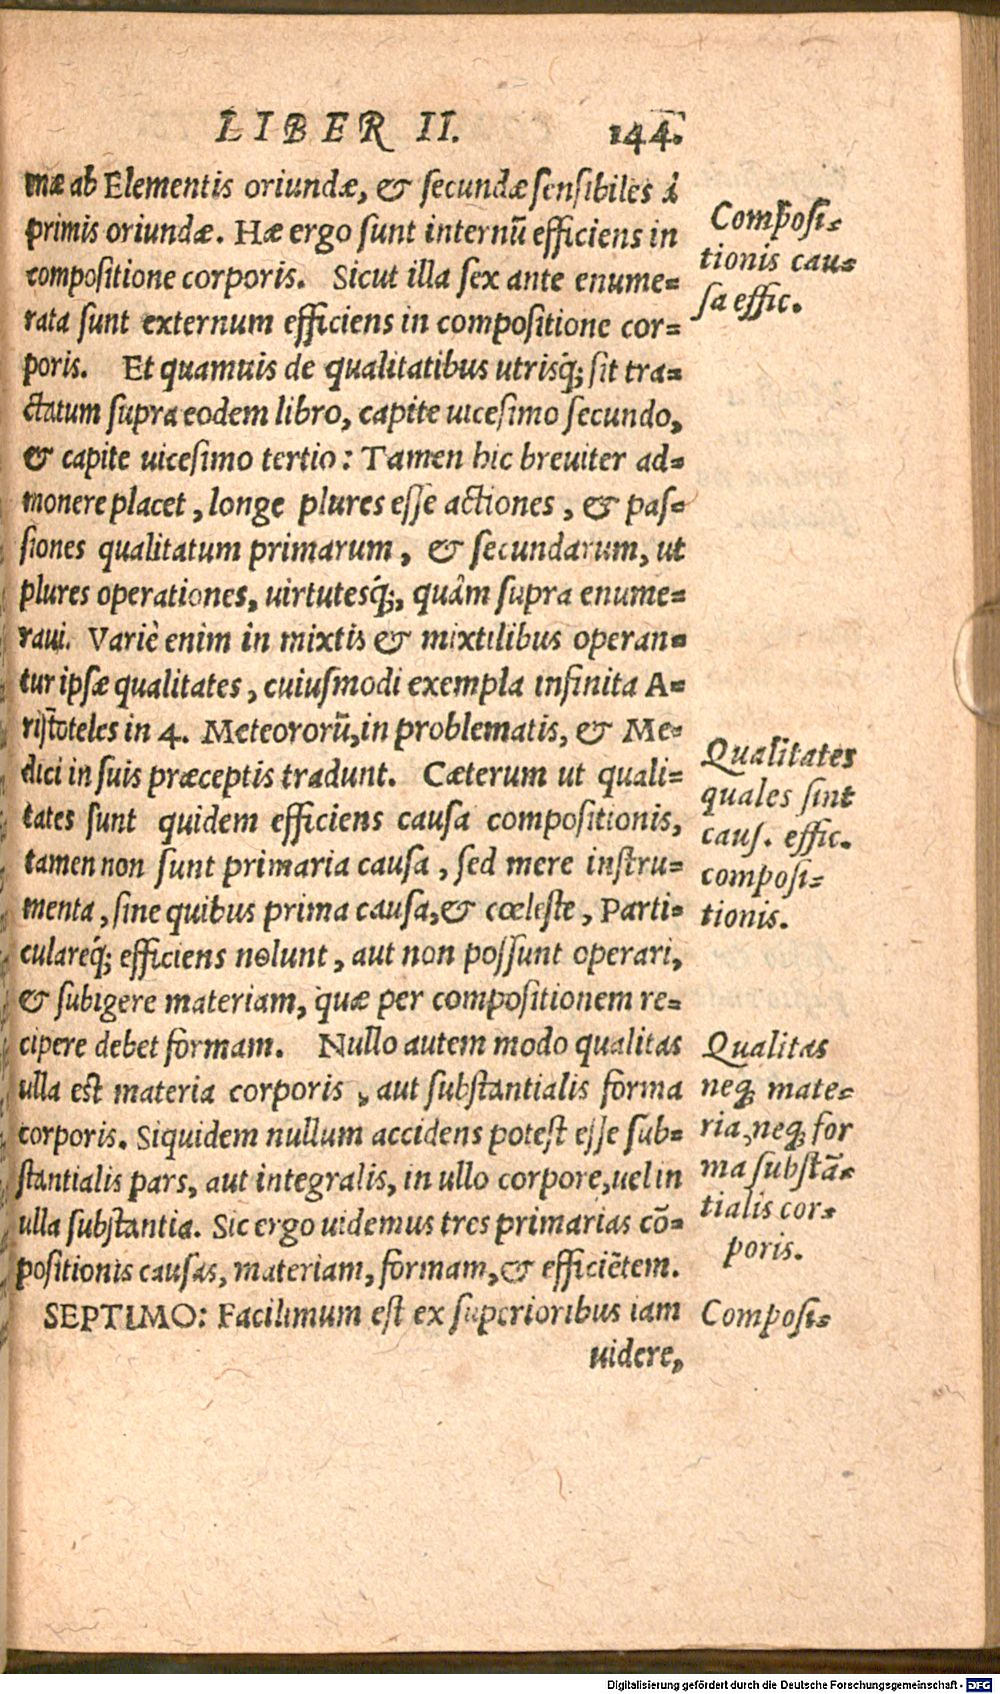 LIBER II. 144.
mæ ab Elementis oriundæ, & secundæ sensibiles à
primis oriundæ. Hæ ergo sunt internũ efficiens in
compositione corporis. Sicut illa sex ante enume=
rata sunt externum efficiens in compositione cor=
poris. Et quamuis de qualitatibus utrisq́; sit tra=
ctatum supra eodem libro, capite uicesimo secundo,
& capite uicesimo tertio: Tamen hic breuiter ad=
monere placet, longe plures esse actiones, & pas=
siones qualitatum primarum, & secundarum, ut
plures operationes, uirtutesq́;, quàm supra enume=
raui. Variè enim in mixtis & mixtilibus operan=
tur ipsæ qualitates, cuiusmodi exempla infinita A=
ristoteles in 4. Meteororũ, in problematis, & Me=
dici in suis præceptis tradunt. Cæterum ut quali=
tates sunt quidem efficiens causa compositionis,
tamen non sunt primaria causa, sed mere instru=
menta, sine quibus prima causa, & cœleste, Parti=
culareq́; efficiens nolunt, aut non possunt operari,
& subigere materiam, quæ per compositionem re=
cipere debet formam. Nullo autem modo qualitas
ulla est materia corporis, aut substantialis forma
corporis. Siquidem nullum accidens potest esse sub=
stantialis pars, aut integralis, in ullo corpore, uel in
ulla substantia. Sic ergo uidemus tres primarias cõ=
positionis causas, materiam, formam, & efficiẽtem.
SEPTIMO: Facilimum est ex superioribus iam
uidere,
Composi=
tionis cau=
sa effic.
Qualitates
quales sint
caus. effic.
composi=
tionis.
Qualitas
neq; mate=
ria, neq; for
ma substã=
tialis cor=
poris.
Composi=
Digitalisierung gefördert durch die Deutsche Forschungsgemeinschaft - DFG